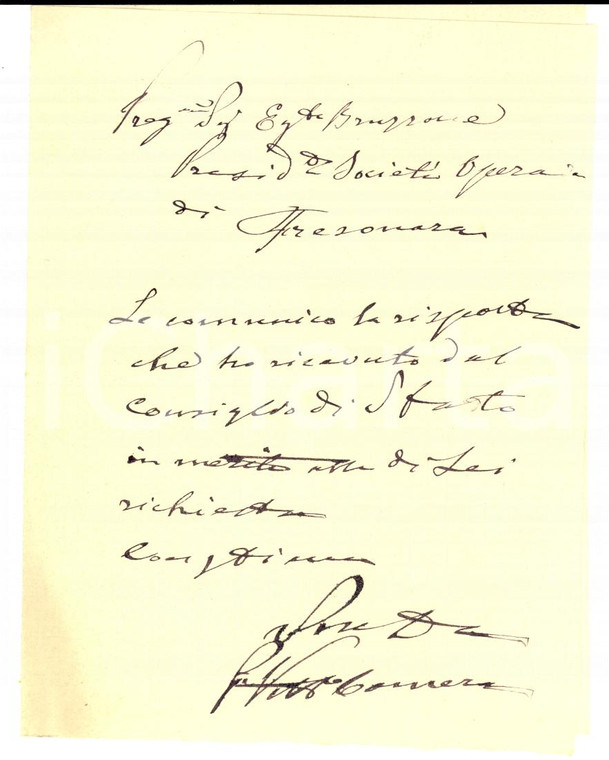 Preg.mo Sig. Eg.do Bruzzone
Presid.te Società Operaia
di Fresonara
Le comunico la risposta
che ho ricevuto dal
Consiglio di Stato
in merito alla di Lei
richiesta
Con stima
iCharta